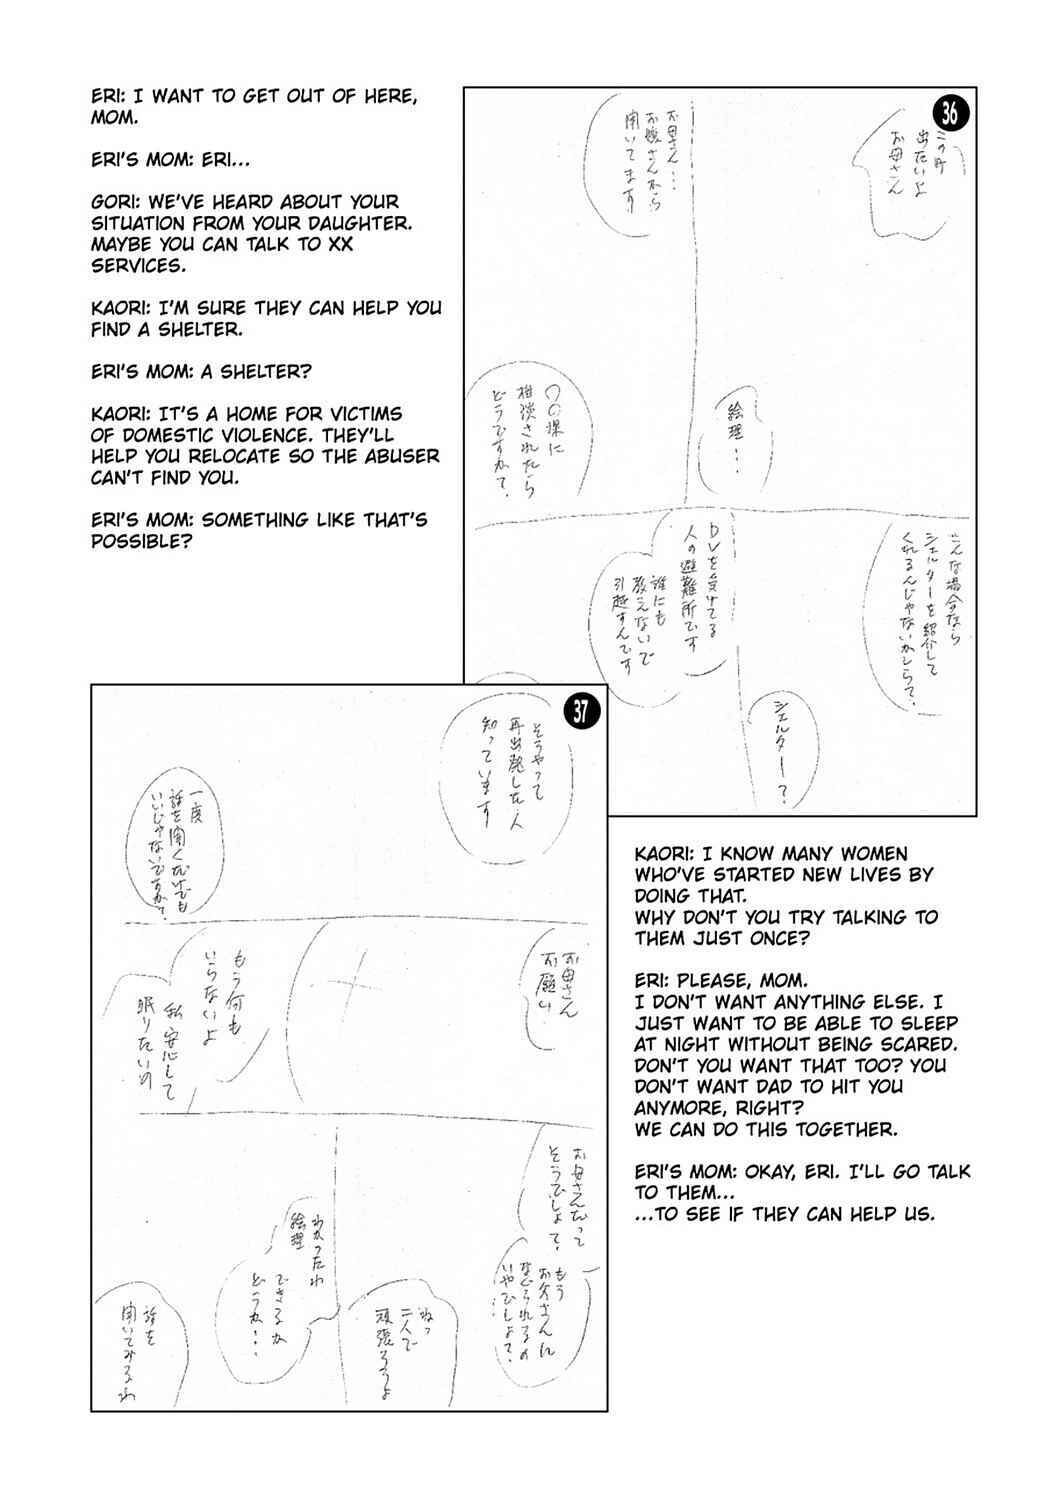 ERI: I WANT TO GET OUT OF HERE,
MOM.
ERI'S MOM: ERI...
GORI: WE'VE HEARD ABOUT YOUR
SITUATION FROM YOUR DAUGHTER.
MAYBE YOU CAN TALK TO XX
SERVICES.
KAORI: I'M SURE THEY CAN HELP YOU
FIND A SHELTER.
ERI'S MOM: A SHELTER?
KAORI: IT'S A HOME FOR VICTIMS
OF DOMESTIC VIOLENCE. THEY'LL
HELP YOU RELOCATE SO THE ABUSER
CAN'T FIND YOU.
ERI'S MOM: SOMETHING LIKE THAT'S
POSSIBLE?
36
この町
出たいよ
お母さん
絵理...
お母さん...
お嬢さんから
聞いてます
〇〇課に
相談されたら
どうですか?
こんな場合なら
シェルターを紹介して
くれるんじゃないかしら?
シェルター?
DVを受けてる
人の避難所です
誰にも
教えないで
引越すんです
37
そうやって
再出発した人
知っています
一度
話を聞くだけでも
いいじゃないですか?
お母さん
お願い
もう何も
いらないよ
私 安心して
眠りたいの
お母さんだって
そうでしょ?
もう
お父さんに
なぐられるの
いやでしょ?
ねっ
二人で
頑張ろうよ
わかったわ
絵理
できるか
どうか...
話を
聞いてみるわ
KAORI: I KNOW MANY WOMEN
WHO'VE STARTED NEW LIVES BY
DOING THAT.
WHY DON'T YOU TRY TALKING TO
THEM JUST ONCE?
ERI: PLEASE, MOM.
I DON'T WANT ANYTHING ELSE. I
JUST WANT TO BE ABLE TO SLEEP
AT NIGHT WITHOUT BEING SCARED.
DON'T YOU WANT THAT TOO? YOU
DON'T WANT DAD TO HIT YOU
ANYMORE, RIGHT?
WE CAN DO THIS TOGETHER.
ERI'S MOM: OKAY, ERI. I'LL GO TALK
TO THEM...
...TO SEE IF THEY CAN HELP US.